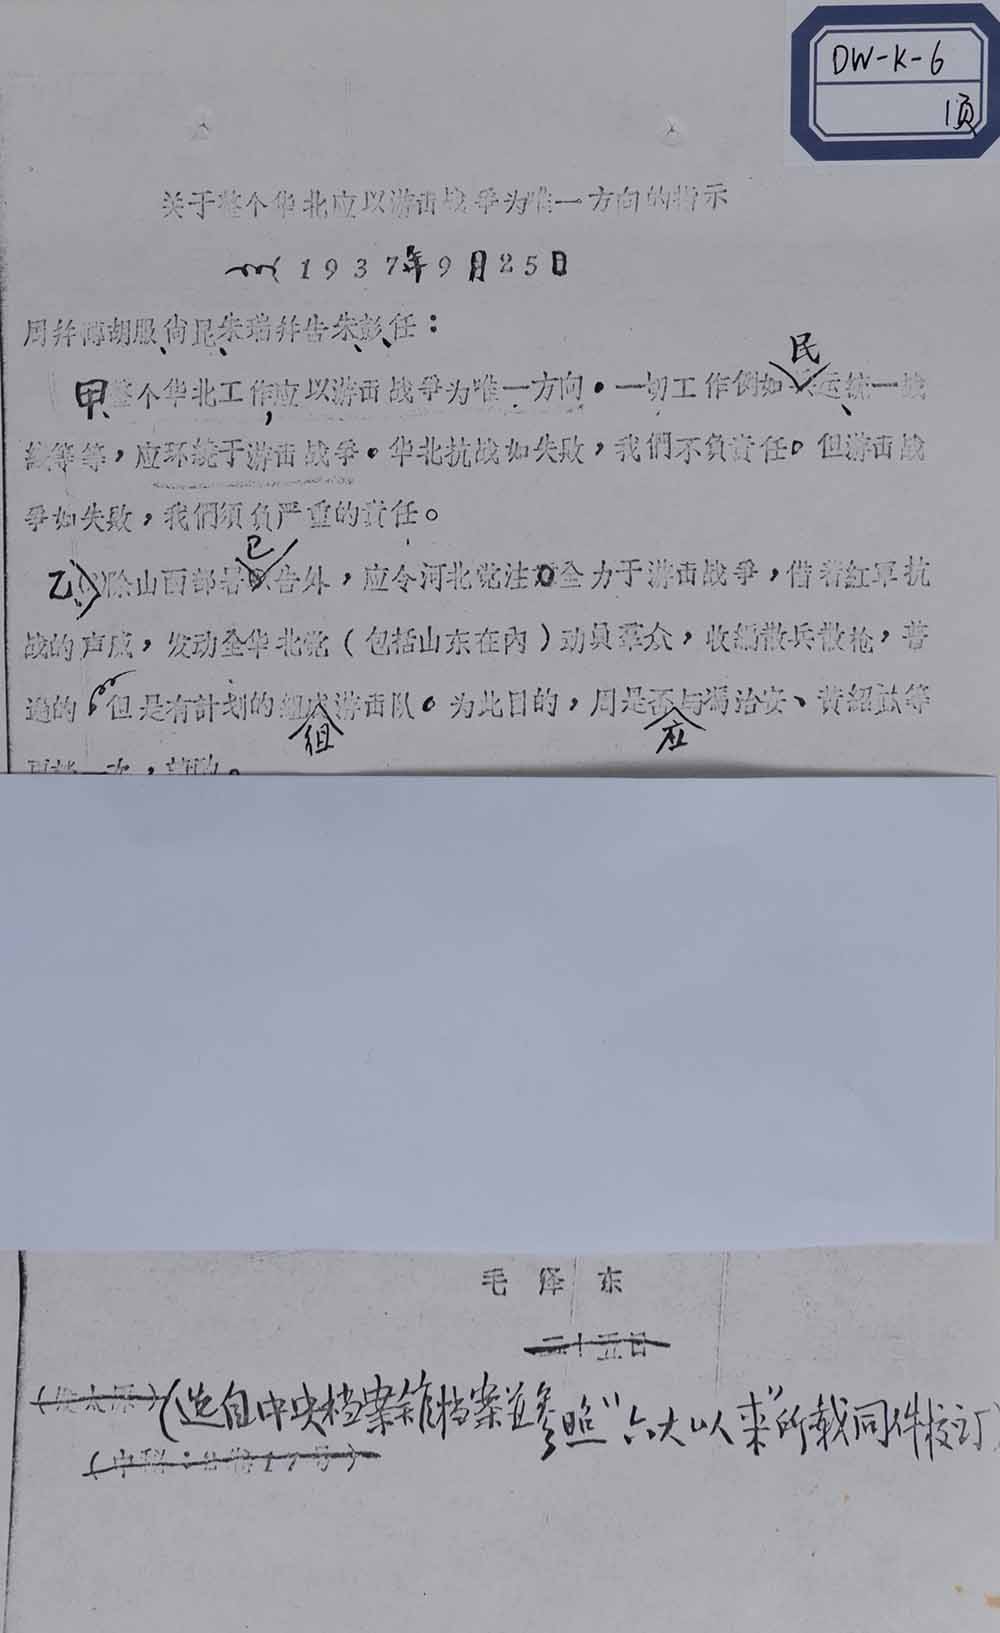 DW-K-6
1页
关于整个华北应以游击战争为唯一方向的指示
1937年9月25日
周并博胡服、尚昆、朱瑞并告朱、彭、任：
甲、整个华北工作，应以游击战争为唯一方向。一切工作例如民运、统一战
线等等，应环绕于游击战争。华北抗战如失败，我們不負責任。但游击战
爭如失敗，我們須負严重的責任。
乙、除山西部署已告外，应令河北党注全力于游击战争，借着紅軍抗
战的声威，发动全华北党（包括山东在內）动員羣众，收編散兵散枪，普
遍的，但是有計划的組成游击队。为此目的，周是否应与馮治安、黄紹竑等
毛 泽 东
二十五日
（选自中央档案馆档案并参照“六大以来”所载同件校订）